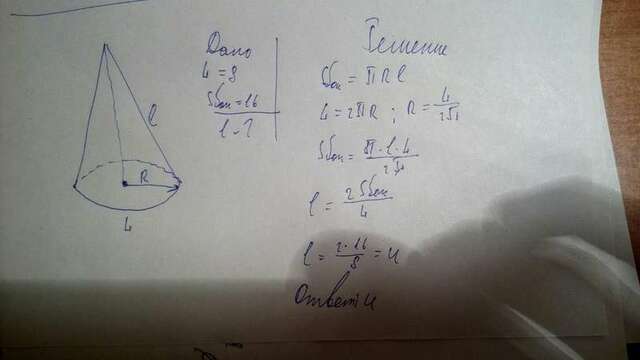 Дано
L = 8
Sбок = 16
l - ?
Решение
Sбок = πRl
L = 2πR ; R = L/2π
Sбок = π · l · L / 2π
l = 2Sбок / L
l = 2 · 16 / 8 = 4
Ответ 4
l
R
L